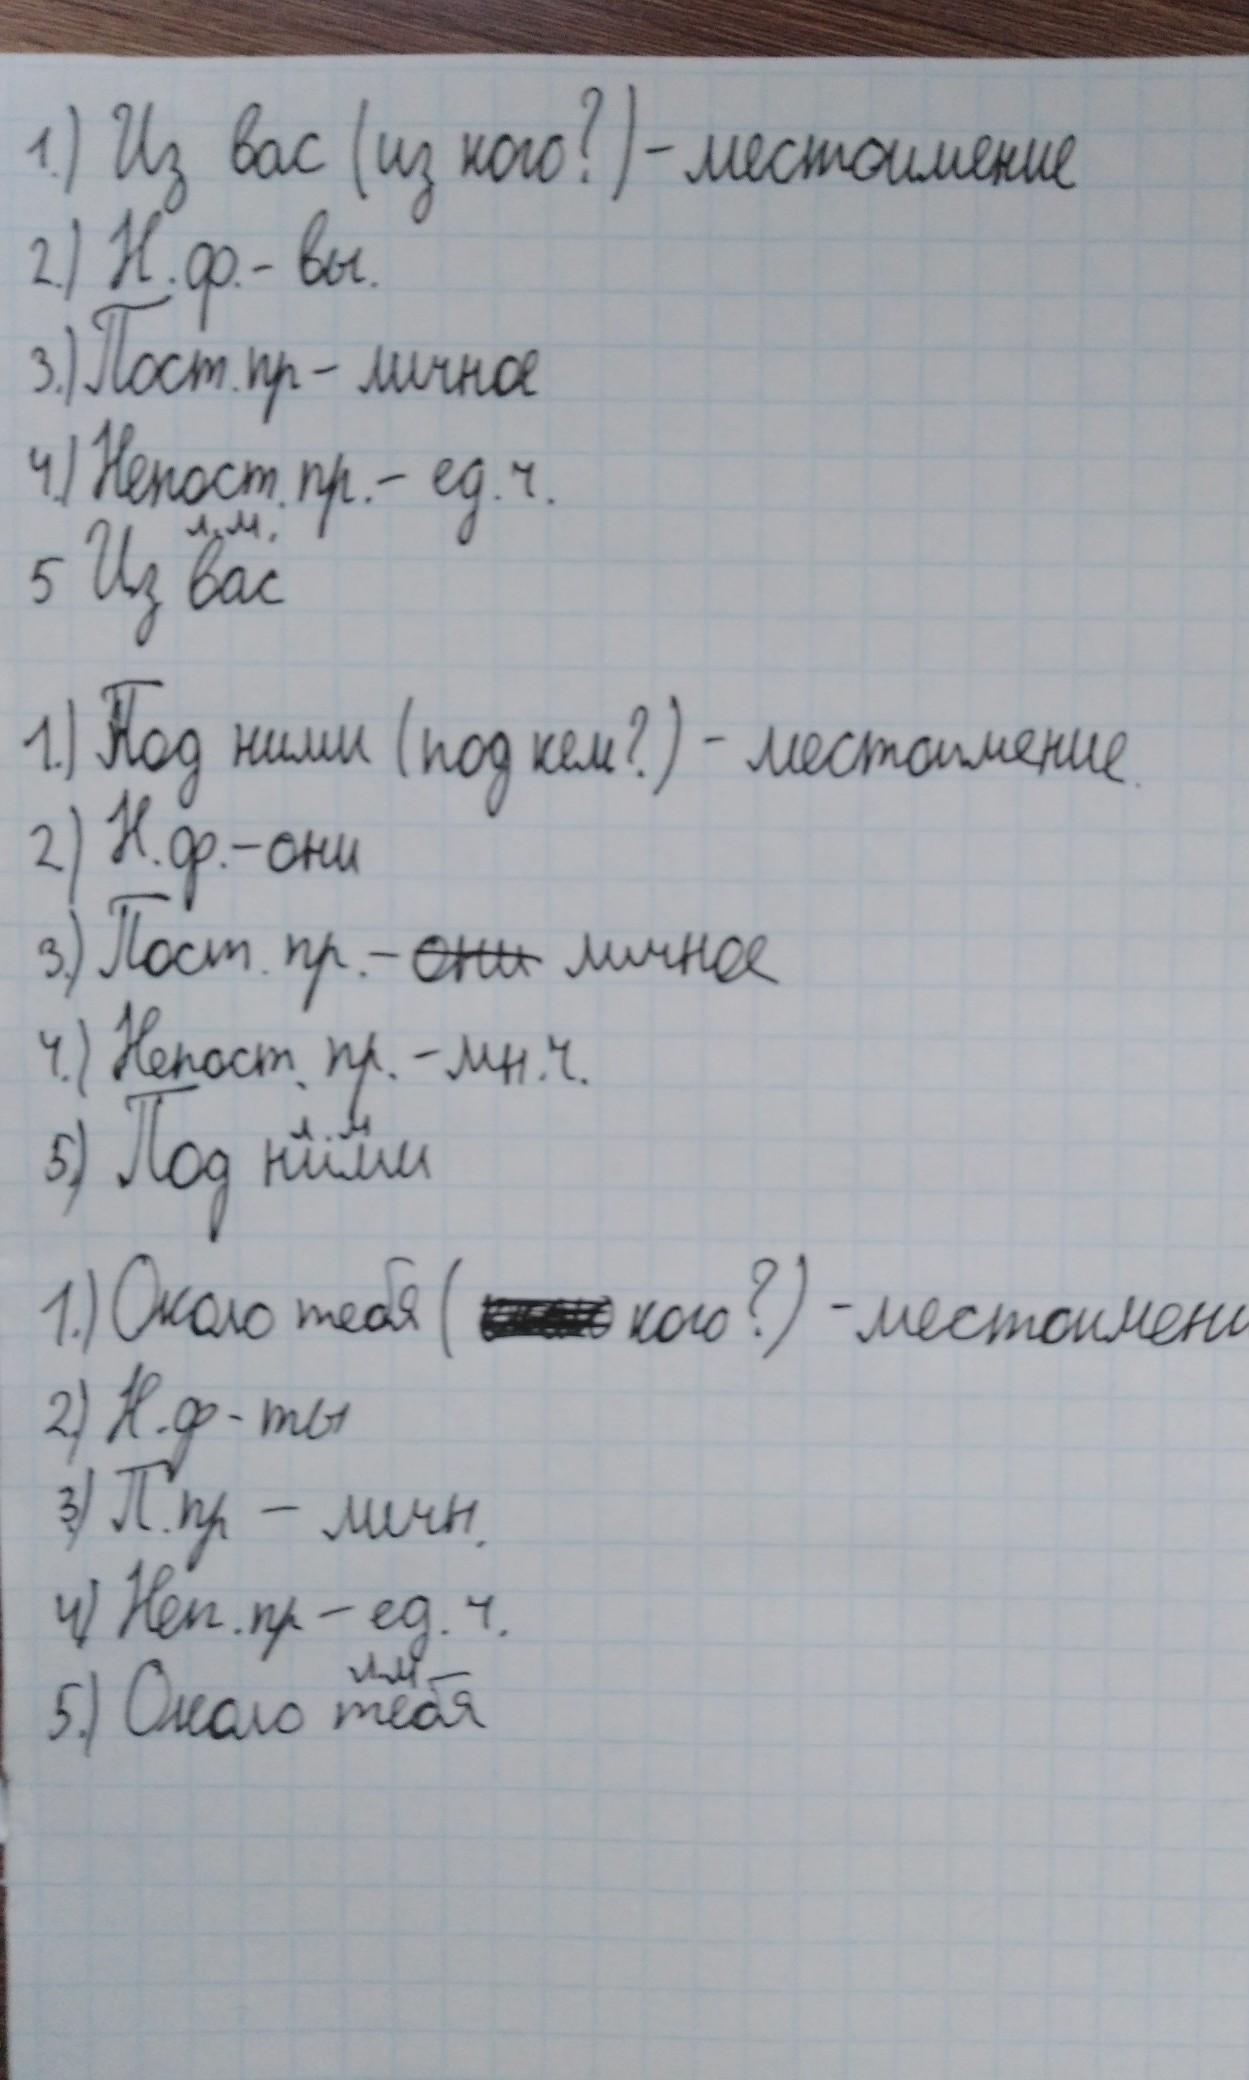 1.) Из вас (из кого?) - местоимение
2.) Н.ф. - вы.
3.) Пост.пр - личное
4.) Непост.пр. - ед.ч.
л.м.
5 Из вас
1.) Под ними (под кем?) - местоимение.
2.) Н.ф. - они
3.) Пост. пр. - они личное
4.) Непост. пр. - мн.ч.
л.м
5.) Под ними
1.) Около тебя ( кого?) - местоимени
2.) Н.ф - ты
3.) П.пр - личн.
4.) Неп.пр - ед.ч.
л.м
5.) Около тебя